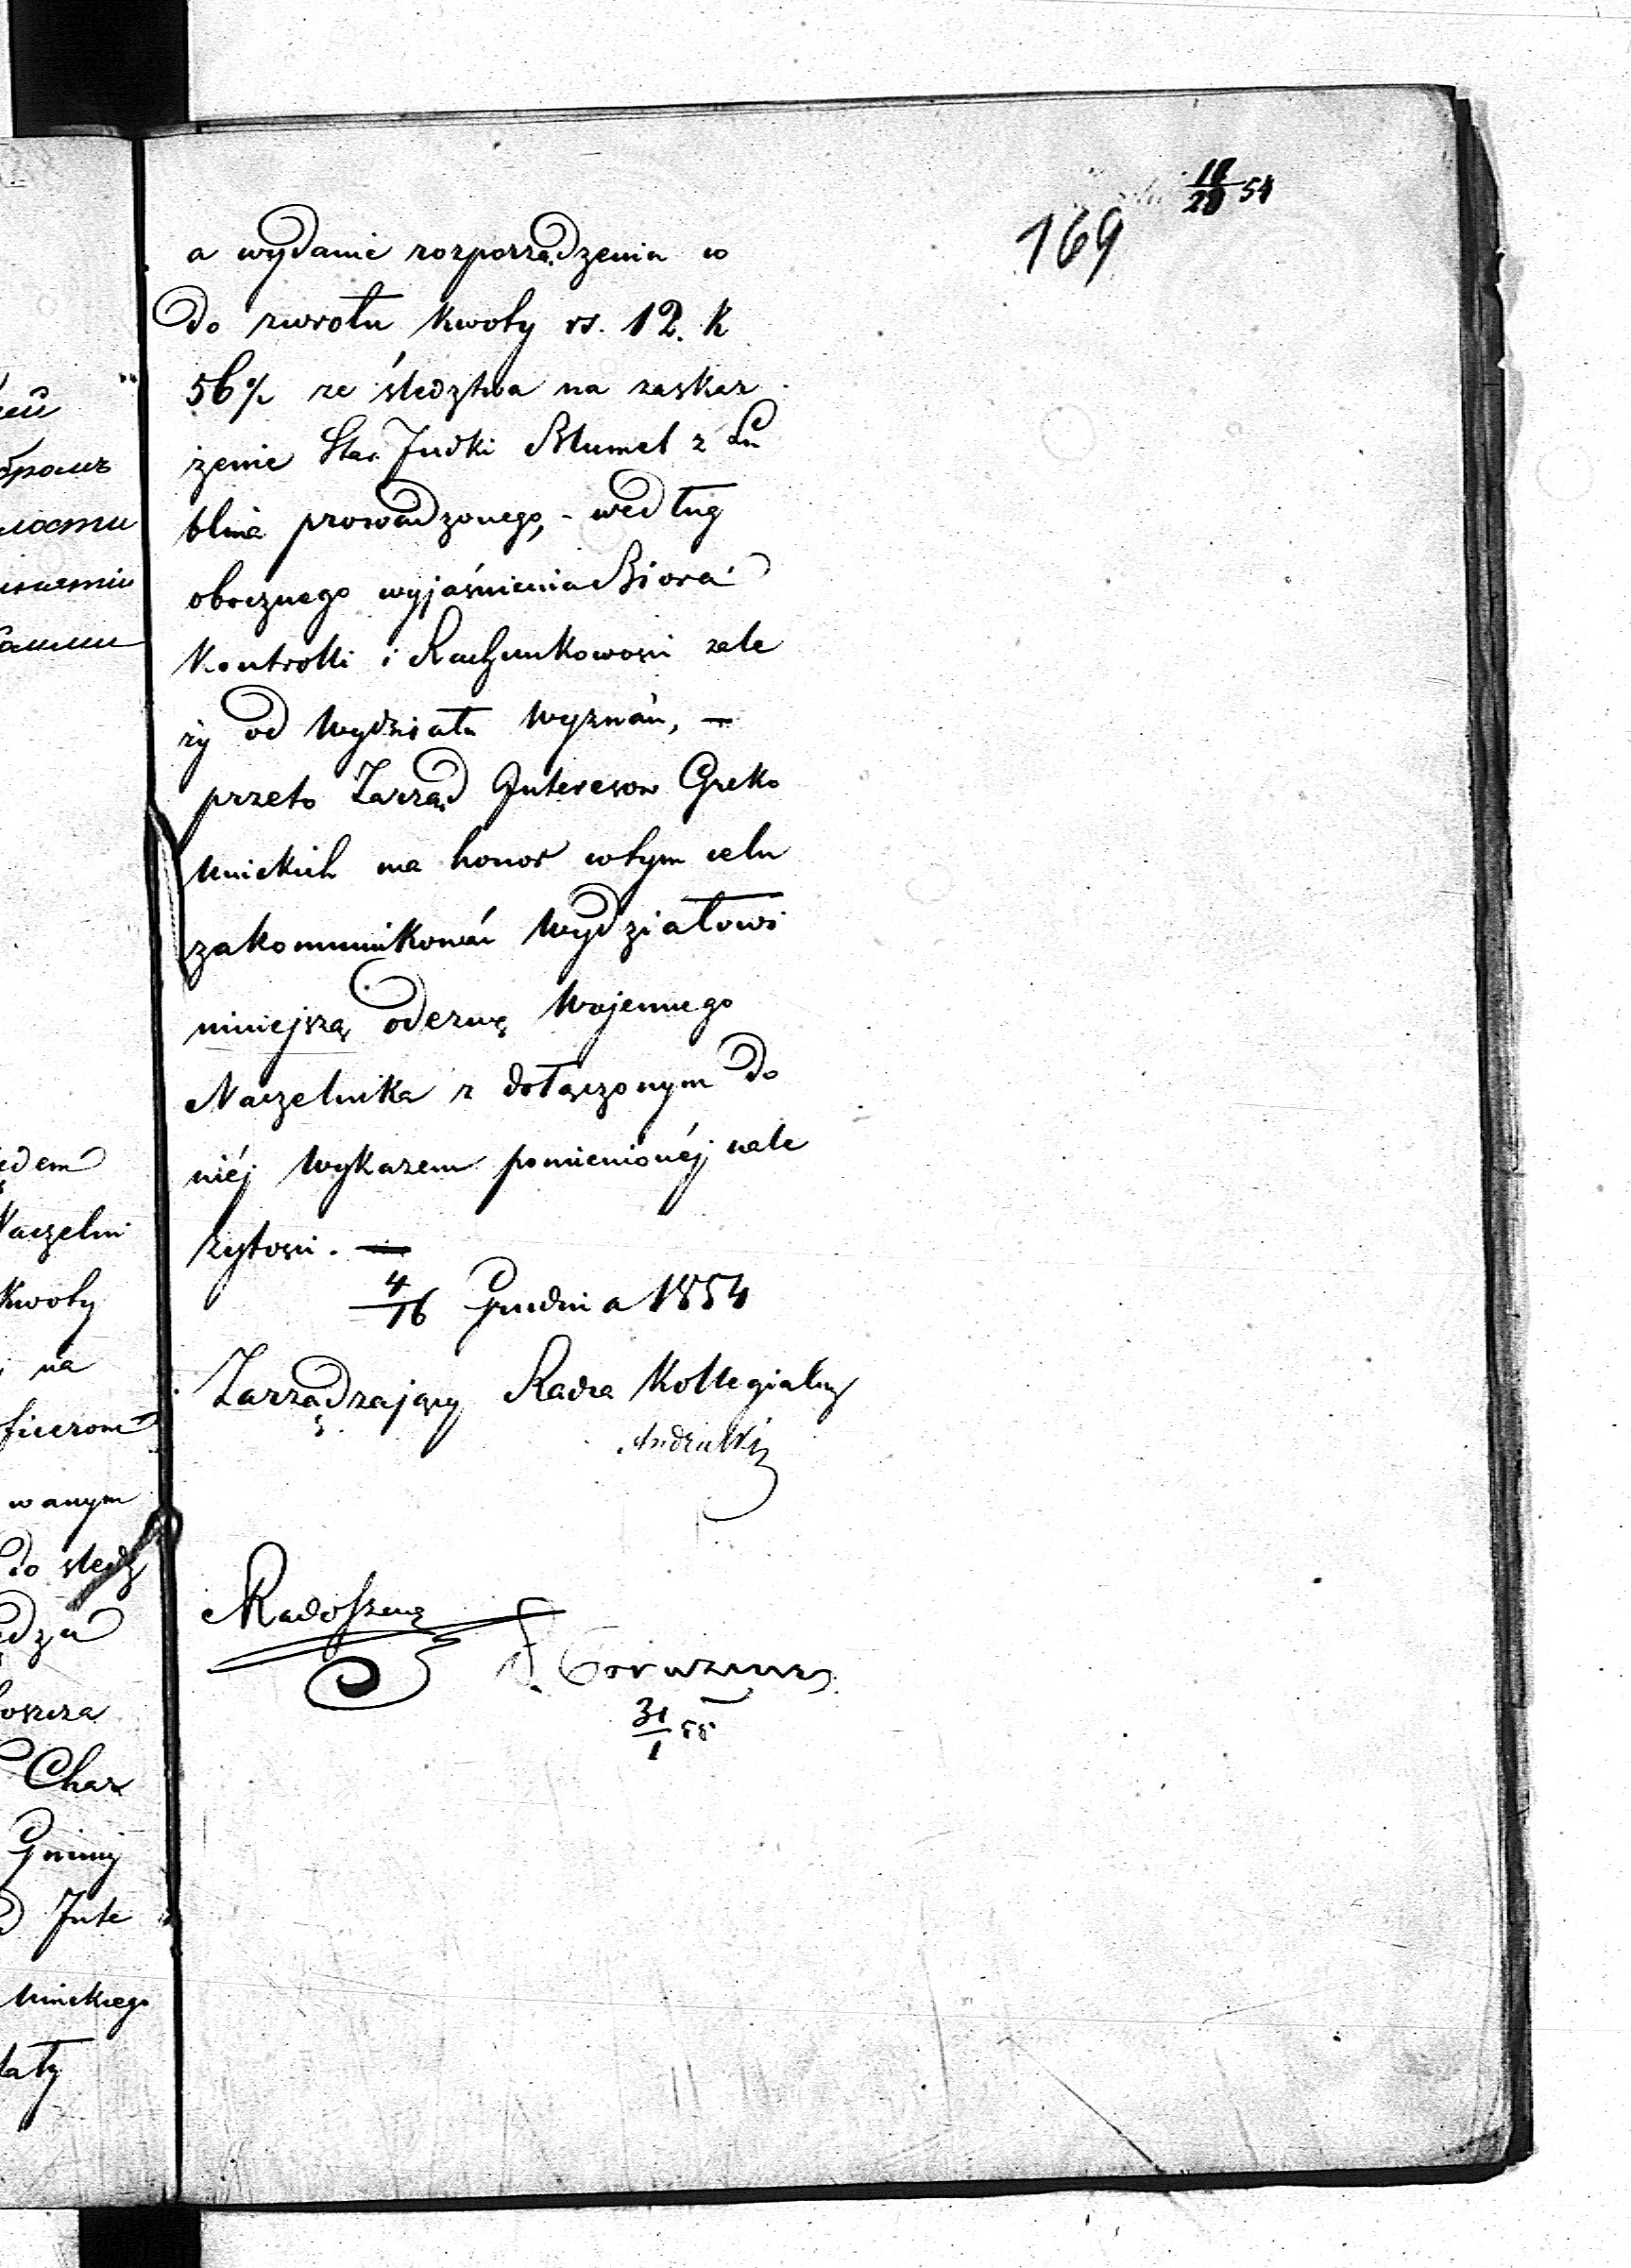 18/28 54
169
a wydanie rozporządzenia co
do zwrotu kwoty rs. 12. k
56½ ze śledztwa na zaskar
żenie Star. Judki Blumel z Lu
blina prowadzonego, - według
obocznego wyjaśnienia Biora
Kontrolli i Rachunkowości nale
ży od Wydziału Wyznań, —
przeto Zarząd Interesow Greko
Unickich ma honor w tym celu
zakommunikować Wydziałowi
niniejszą odezwę Wojennego
Naczelnika z dołączonym do
niéj wykazem pomienionéj nale
żytości. —
4/16 Grudnia 1854
Zarządzający Radca Kollegialny
31/1 55
ędem
Naczelni
Kwoty
na
ficerom
wanym
do śledz
ądza
oszcza
Char
Gminy
Inte
Unickiego
łaty